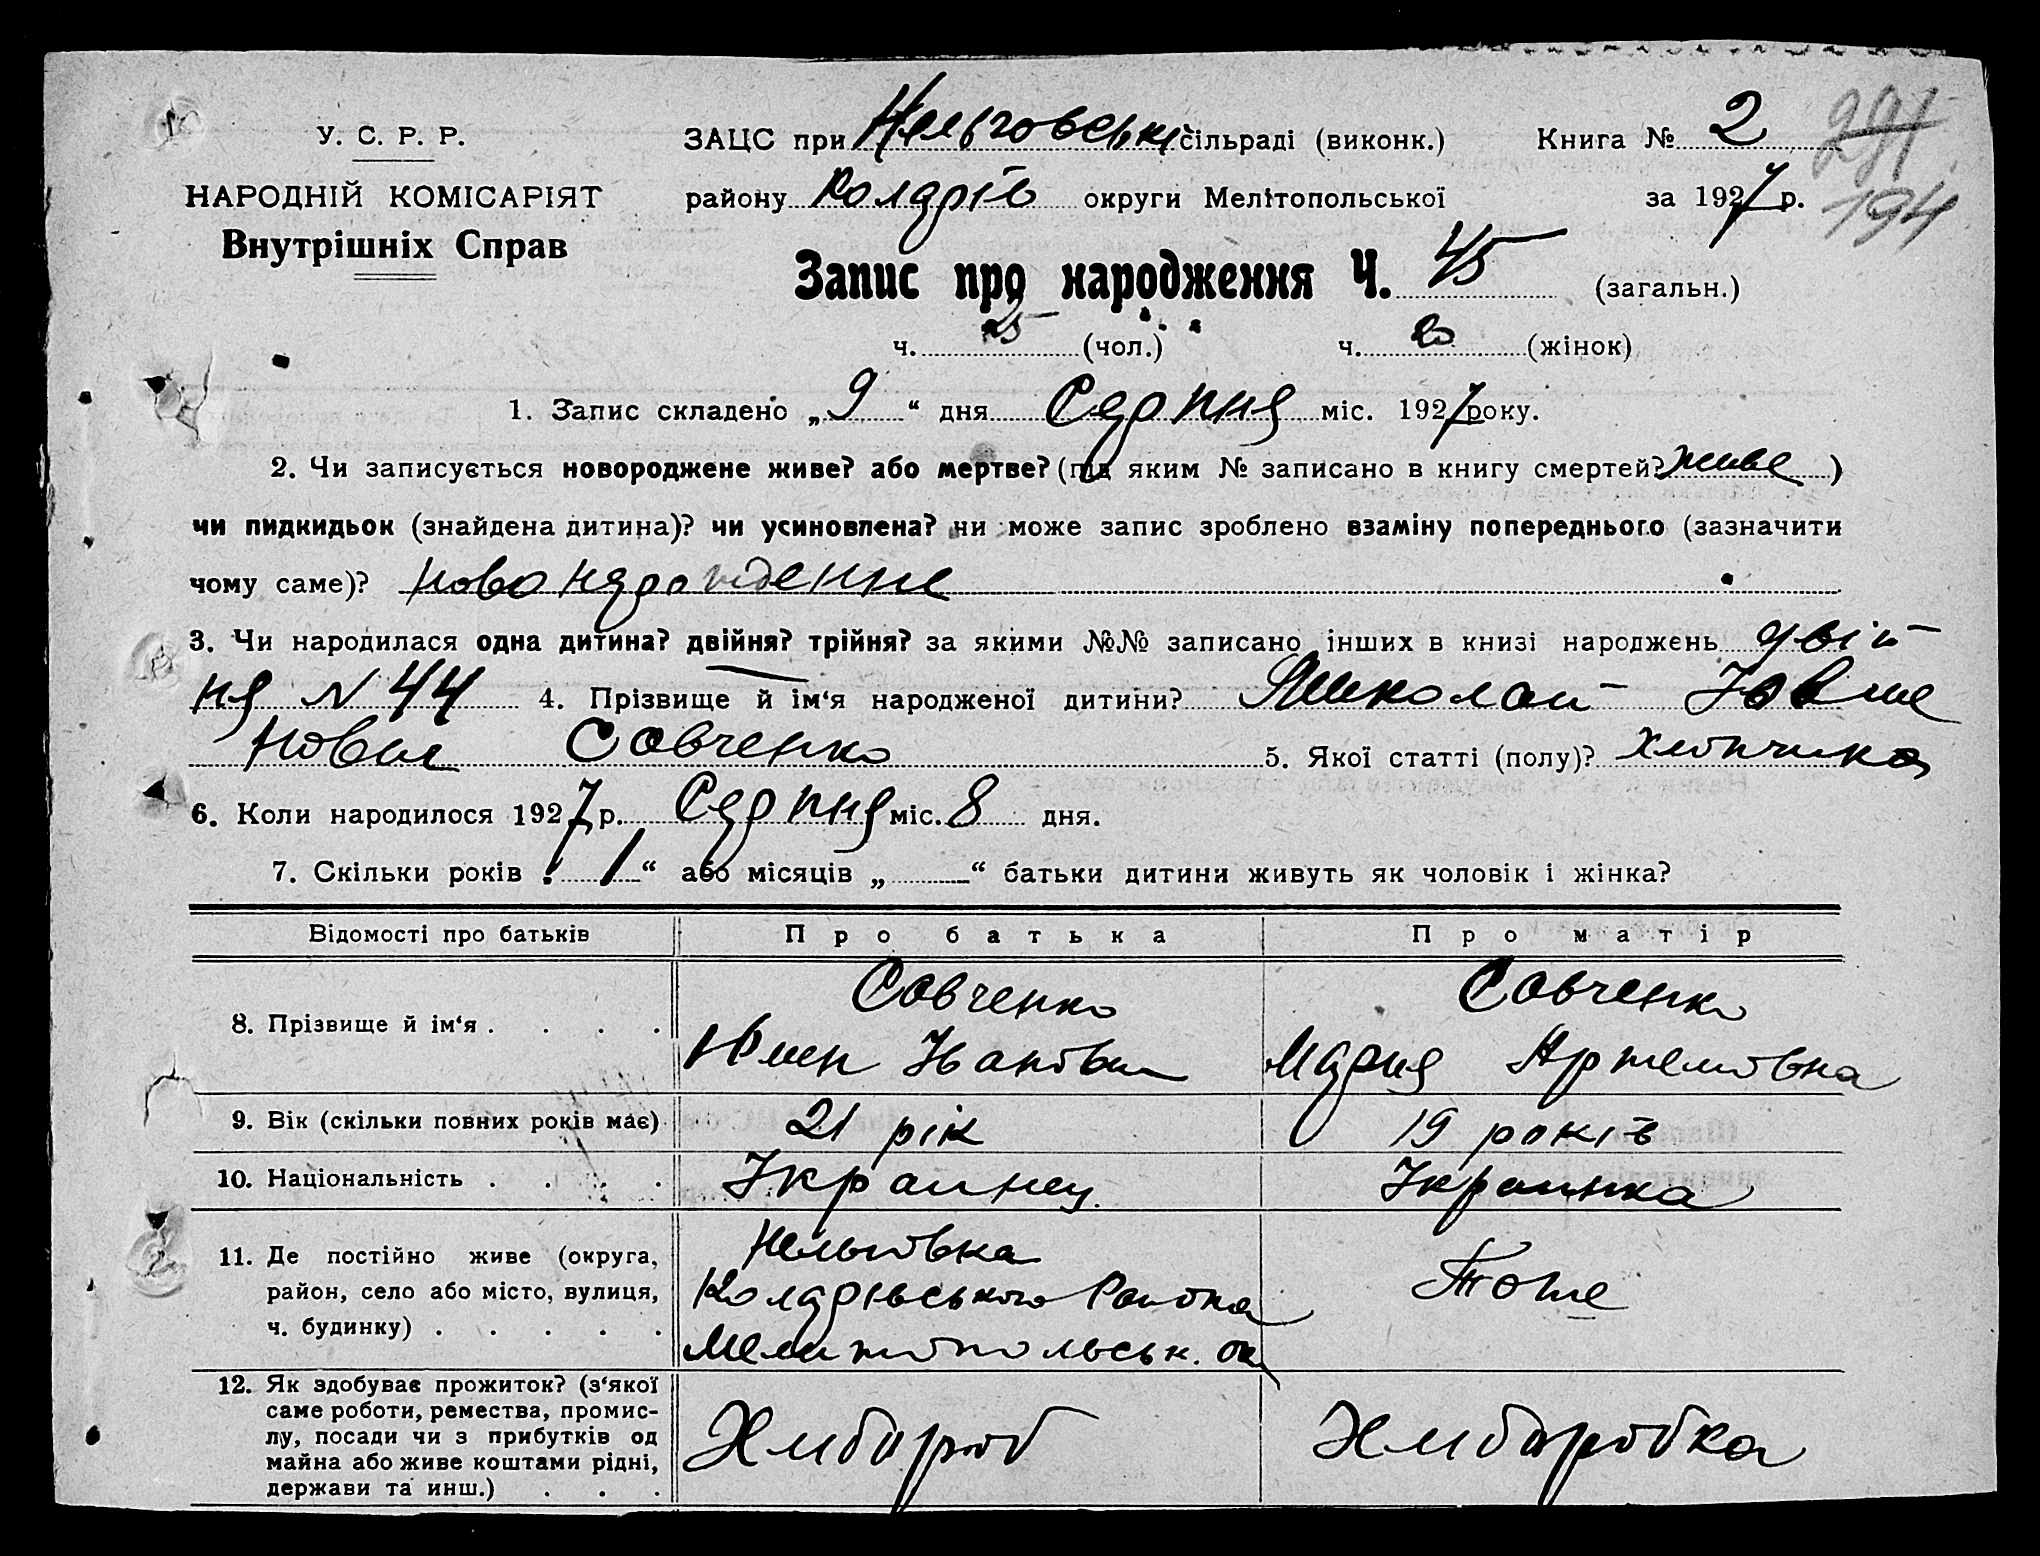 У. С. Р. Р.
НАРОДНІЙ КОМІСАРІЯТ
Внутрішніх Справ
ЗАЦС при Нельговській сільраді (виконк.) Книга № 2
291
району Коларів округи Мелітопольської за 1927 р.
194
Запис про народження Ч. 45 (загальн.)
ч. 25 (чол.) ч. 20 (жінок)
1. Запис складено „9“ дня Серпня міс. 1927 року.
2. Чи записується новороджене живе? або мертве? (під яким № записано в книгу смертей? живе)
чи пидкидьок (знайдена дитина)? чи усиновлена? чи може запис зроблено взаміну попереднього (зазначити
чому саме)? новонарожденне
3. Чи народилася одна дитина? двійня? трійня? за якими №№ записано інших в книзі народжень двій
ня N 44 4. Прізвище й ім‘я народженої дитини? Миколай
Савченко 5. Якої статті (полу)? хлопчика
6. Коли народилося 1927 р. Серпня міс. 8 дня.
7. Скільки років „1“ або місяців „ “ батьки дитини живуть як чоловік і жінка?
Відомості про батьків Про батька Про матір
8. Прізвище й ім‘я . . . . Савченко Іванович Савченко Мария Артемовна
9. Вік (скільки повних років має) 21 рік 19 років
10. Національність . . . . Украинец Украинка
11. Де постійно живе (округа,
район, село або місто, вулиця,
ч. будинку) . . . . . Нельговка
Коларівського Района
Мелитопольськ. ок
Тоже
12. Як здобуває прожиток? (з‘якої
саме роботи, ремества, промис-
лу, посади чи з прибутків од
майна або живе коштами рідні,
держави та инш.) . . . Хлібороб Хліборобка